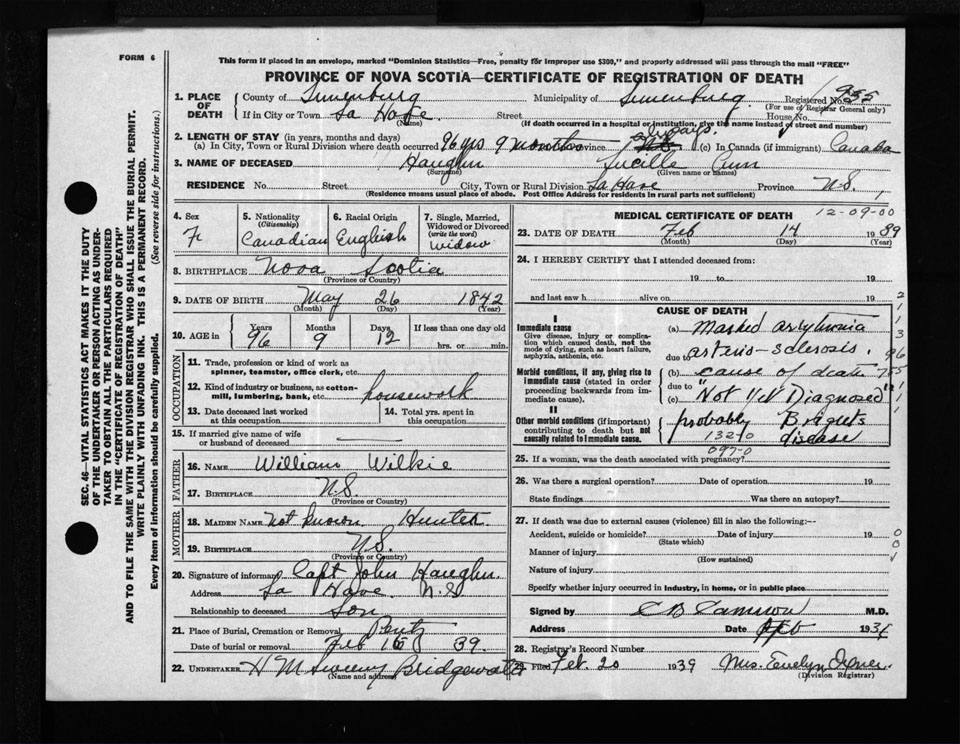 FORM 6
This form if placed in an envelope, marked "Dominion Statistics—Free, penalty for improper use $300," and properly addressed will pass through the mail "FREE"
PROVINCE OF NOVA SCOTIA—CERTIFICATE OF REGISTRATION OF DEATH
SEC. 46—VITAL STATISTICS ACT MAKES IT THE DUTY
OF THE UNDERTAKER OR PERSON ACTING AS UNDER-
TAKER TO OBTAIN ALL THE PARTICULARS REQUIRED
IN THE "CERTIFICATE OF REGISTRATION OF DEATH"
AND TO FILE THE SAME WITH THE DIVISION REGISTRAR WHO SHALL ISSUE THE BURIAL PERMIT.
WRITE PLAINLY WITH UNFADING INK. THIS IS A PERMANENT RECORD.
Every item of information should be carefully supplied. (See reverse side for instructions.)
1. PLACE OF DEATH County of Lunenburg Municipality of Lunenburg Registered No. 935
(For use of Registrar General only)
If in City or Town La Have Street House No.
(Name) (If death occurred in a hospital or institution, give the name instead of street and number)
2. LENGTH OF STAY (in years, months and days)
(a) In City, Town or Rural Division where death occurred 96 yrs 9 months days. (c) In Canada (if immigrant) Canada
3. NAME OF DECEASED Haughn Lucille Ann
(Surname) (Given name or names)
RESIDENCE No. Street City, Town or Rural Division La Have Province N.S.
(Residence means usual place of abode. Post Office Address for residents in rural parts not sufficient)
4. Sex F
5. Nationality (Citizenship) Canadian
6. Racial Origin English
7. Single, Married, Widowed or Divorced (write the word) Widow
8. BIRTHPLACE Nova Scotia
(Province or Country)
9. DATE OF BIRTH May 26 1842
(Month) (Day) (Year)
10. AGE in Years 96 Months 9 Days 12 If less than one day old
hrs. or min.
OCCUPATION
11. Trade, profession or kind of work as
spinner, teamster, office clerk, etc.
12. Kind of industry or business, as cotton-
mill, lumbering, bank, etc. housework
13. Date deceased last worked
at this occupation
14. Total yrs. spent in
this occupation
15. If married give name of wife
or husband of deceased
FATHER
16. NAME William Wilkie
17. BIRTHPLACE N.S.
(Province or Country)
MOTHER
18. MAIDEN NAME not known Hunter
19. BIRTHPLACE N.S.
(Province or Country)
20. Signature of informant Capt John Haughn
Address La Have N.S
Relationship to deceased Son
21. Place of Burial, Cremation or Removal Pentz
Date of burial or removal Feb 16 39.
22. UNDERTAKER H M Sweeny Bridgewater
(Name and address)
MEDICAL CERTIFICATE OF DEATH
12-09-00
23. DATE OF DEATH Feb 14 1939
(Month) (Day) (Year)
24. I HEREBY CERTIFY that I attended deceased from:
19 to 19
and last saw h alive on 19
CAUSE OF DEATH
I
Immediate cause
Give disease, injury or complica-
tion which caused death, not the
mode of dying, such as heart failure,
asphyxia, asthenia, etc.
(a) Marked arrythmia
due to arterio-sclerosis.
Morbid conditions, if any, giving rise to
immediate cause (stated in order
proceeding backwards from im-
mediate cause).
(b) cause of death
due to
(c) "Not Yet Diagnosed
II
Other morbid conditions (if important)
contributing to death but not
causally related to immediate cause.
probably Brights
disease
132-0
097-0
25. If a woman, was the death associated with pregnancy?
26. Was there a surgical operation? Date of operation 19
State findings Was there an autopsy?
27. If death was due to external causes (violence) fill in also the following:—
Accident, suicide or homicide? Date of injury 19
(State which)
Manner of injury
(How sustained)
Nature of injury
Specify whether injury occurred in industry, in home, or in public place
Signed by C B Cameron M.D.
Address Date Feb 193
28. Registrar's Record Number
29. Filed Feb. 20 1939 Mrs. Evelyn
(Division Registrar)